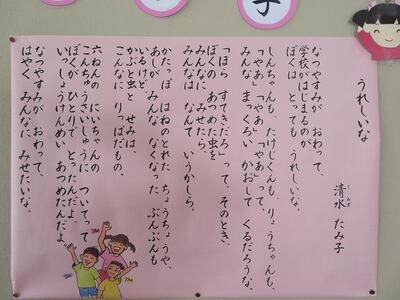 子
うれしいな
清水 たみ子
なつやすみが おわって、
学校がはじまるのが
ぼくは とっても うれしいな。
しんちゃんも、たけじくんも、りょうちゃんも、
「やあ」「やあ」「やあ」って、
みんな まっくろい かおして くるだろうな。
「ほら すてきだろ」って、そのとき、
ぼくの あつめた虫を
みんなに みせたら、
みんなは なんて いうかしら。
かたっぽ はねのとれた ちょうちょうや、
あしが みんな なくなった ぶんぶんも
いるけれど、
かぶと虫と せみは、
こんなに りっぱだもの。
六ねんの にいちゃんの
こんちゅうさいしゅうに ついてって
ぼくが ひとりで とったんだよ、
いっしょうけんめい あつめたんだよ。
なつやすみが おわって、
はやく みんなに みせたいな。